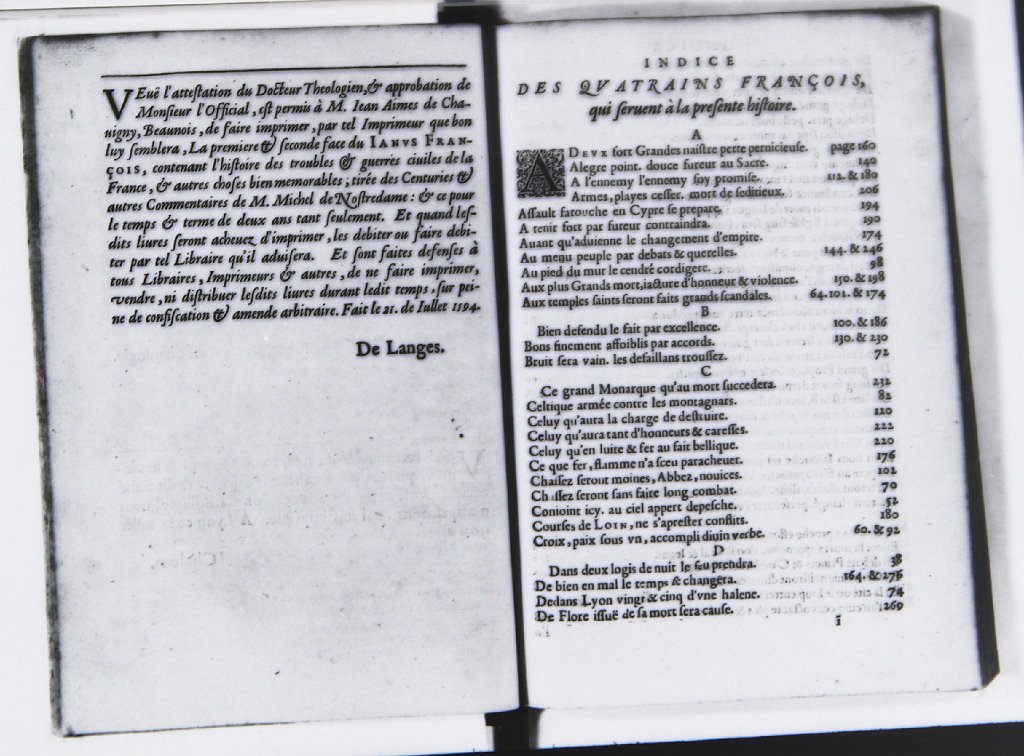 VEuë l'attestation du Docteur Theologien,& approbation de
Monsieur l'Official, est permis à M. Iean Aimes de Cha-
uigny, Beaunois, de faire imprimer, par tel Imprimeur que bon
luy semblera, La premiere & seconde face du IANVS FRAN-
ÇOIS, contenant l'histoire des troubles & guerres ciuiles de la
France, & autres choses bien memorables, tirée des Centuries &
autres Commentaires de M. Michel de Nostredame: & ce pour
le temps & terme de deux ans tant seulement. Et quand les-
dits liures seront acheuez d'imprimer, les debiter ou faire debi-
ter par tel Libraire qu'il aduisera. Et sont faites defenses à
tous Libraires, Imprimeurs & autres, de ne faire imprimer,
vendre, ni distribuer lesdits liures durant ledit temps, sur pei-
ne de confiscation & amende arbitraire. Fait le 21. de Iuillet 1594.
De Langes.
INDICE
DES QVATRAINS FRANÇOIS,
qui seruent à la presente histoire.
A
A DEVX sort Grandes naistre peste pernicieuse. page 160
Alegre point. douce fureur au Sacre. 140
A l'ennemy l'ennemy foy promise. 112. & 180
Armes, playes cesser. mort de seditieux. 206
Assault farouche en Cypre se prepare. 194
A tenir fort par fureur contraindra. 190
Auant qu'aduienne le changement d'empire. 174
Au menu peuple par debats & querelles. 144. & 246
Au pied du mur le cendré cordigere. 98
Aux plus Grands mort, iacture d'honneur & violence. 150. & 198
Aux temples saints seront faits grands scandales. 64. 101. & 174
B
Bien defendu le fait par excellence. 100. & 186
Bons finement affoiblis par accords. 130. & 230
Bruit sera vain. les defaillans troussez. 72
C
Ce grand Monarque qu'au mort succedera. 232
Celtique armée contre les montagnars. 82
Celuy qu'aura la charge de destruire. 120
Celuy qu'aura tant d'honneurs & caresses. 222
Celuy qu'en luite & fer au fait bellique. 220
Ce que fer, flamme n'a sceu paracheuer. 176
Chassez seront moines, Abbez, nouices. 102
Chassez seront sans faire long combat. 70
Conioint icy. au ciel appert depesche. 52
Courses de LOIN, ne s'aprester conflits. 180
Croix, paix sous vn, accompli diuin verbe. 60. & 92
D
Dans deux logis de nuit le feu prendra. 38
De bien en mal le temps se changera. 164. & 276
Dedans Lyon vingt & cinq d'vne halene. 74
De Flore issuë de sa mort sera cause. 260